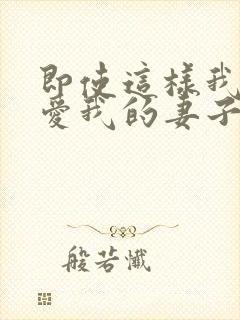 即使這樣我
愛我的妻子
般若懺